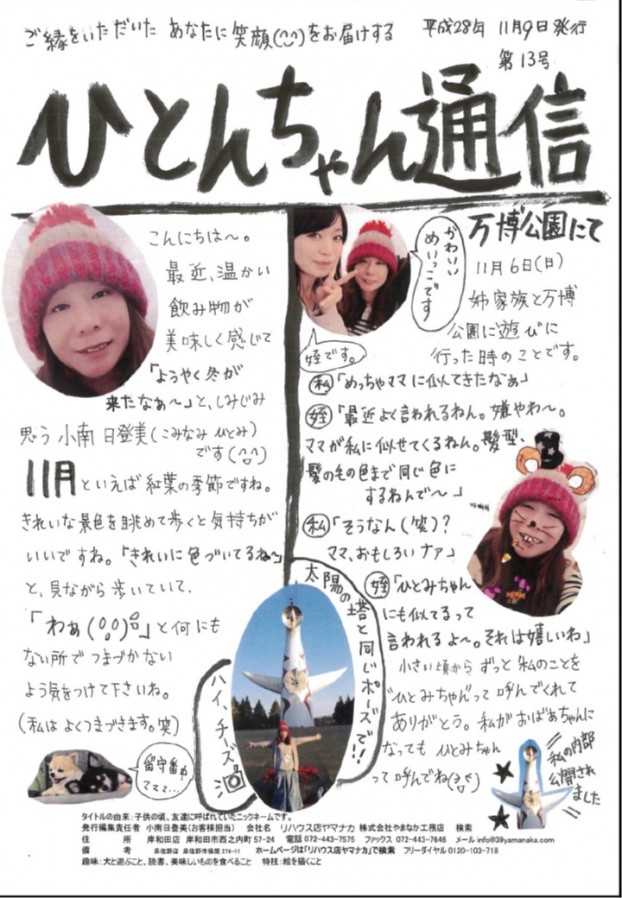 ご縁をいただいた あなたに笑顔(^^)をお届けする
平成28年 11月9日 発行
第13号
ひとんちゃん通信
こんにちは〜。
最近、温かい
飲み物が
美味しく感じて
「ようやく冬が
来たなぁ〜」と、しみじみ
思う 小南 日登美(こみなみ ひとみ)
です(^^)
11月といえば紅葉の季節ですね。
きれいな景色を眺めて歩くと気持ちが
いいですね。「きれいに色づいてるね〜」
と、見ながら歩いていて、
「わぁ」と何にも
ない所でつまづかない
よう気をつけて下さいね。
(私はよくつまづきます。笑)
留守番中
ててて…
万博公園にて
かわいい
めいっこです
姪です。
11月6日(日)
姉家族と万博
公園に遊びに
行った時のことです。
私「めっちゃママに似てきたなぁ」
姪「最近よく言われるねん。嫌やわ〜。
ママが私に似せてくるねん。髪型、
髪の毛の色まで同じ色に
するねんで〜」
私「そうなん(笑)?
ママ、おもしろいナァ」
姪「ひとみちゃん
にも似てるって
言われるよ〜。それは嬉しいね」
小さい頃からずっと私のことを
"ひとみちゃん"って呼んでくれて
ありがとう。私がおばあちゃんに
なっても ひとみちゃん
って呼んでね(^^)
太陽の塔と同じポーズで!!
ハイ、チーズ
私の内部
公開され
ました
タイトルの由来:子供の頃、友達に呼ばれていたニックネームです。
発行編集責任者 小南日登美(お客様担当) 会社名 リハウス店ヤマナカ 株式会社やまなか工務店 検索
住 所 岸和田店 岸和田市西之内町57-24 電話072-443-7575 ファックス 072-443-7646 メール info@39yamanaka.com
備 考 泉佐野店 泉佐野市俵屋274-11 ホームページは「リハウス店ヤマナカ」で検索 フリーダイヤル0120-103-718
趣味:犬と遊ぶこと、読書、美味しいものを食べること 特技:絵を描くこと